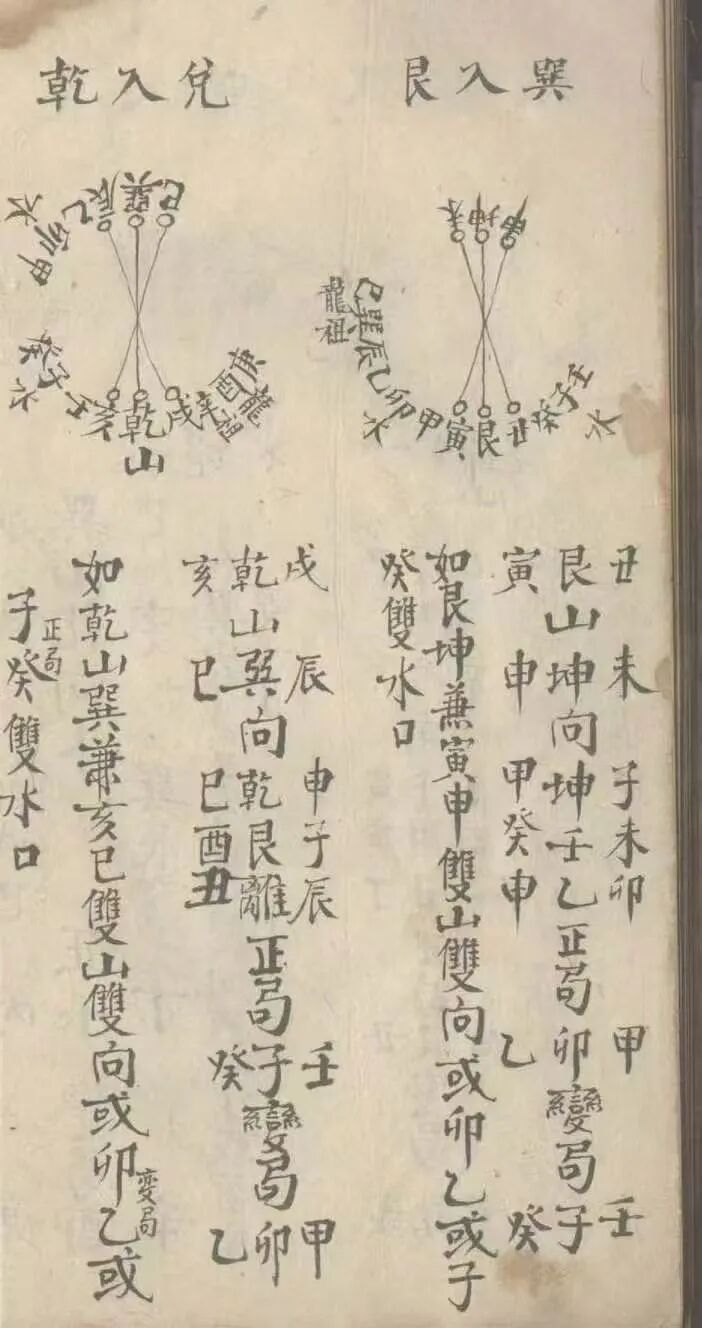 巽入艮
申坤未
壬子癸丑艮寅甲卯乙辰巽巳
水
水
龍祖
丑未子未卯甲壬
艮山坤向坤壬乙正局卯變局子
寅申甲癸申乙癸
如艮坤兼寅申雙山雙向或卯乙或子
癸雙水口
兌入乾
巳巽辰乙卯甲
水
庚酉辛戌乾亥壬子癸
龍祖
水
山
戌辰申子辰壬甲
乾山巽向乾艮離正局子變局卯
亥巳巳酉丑癸乙
如乾山巽兼亥巳雙山雙向或卯乙或
变局
正局
子癸雙水口